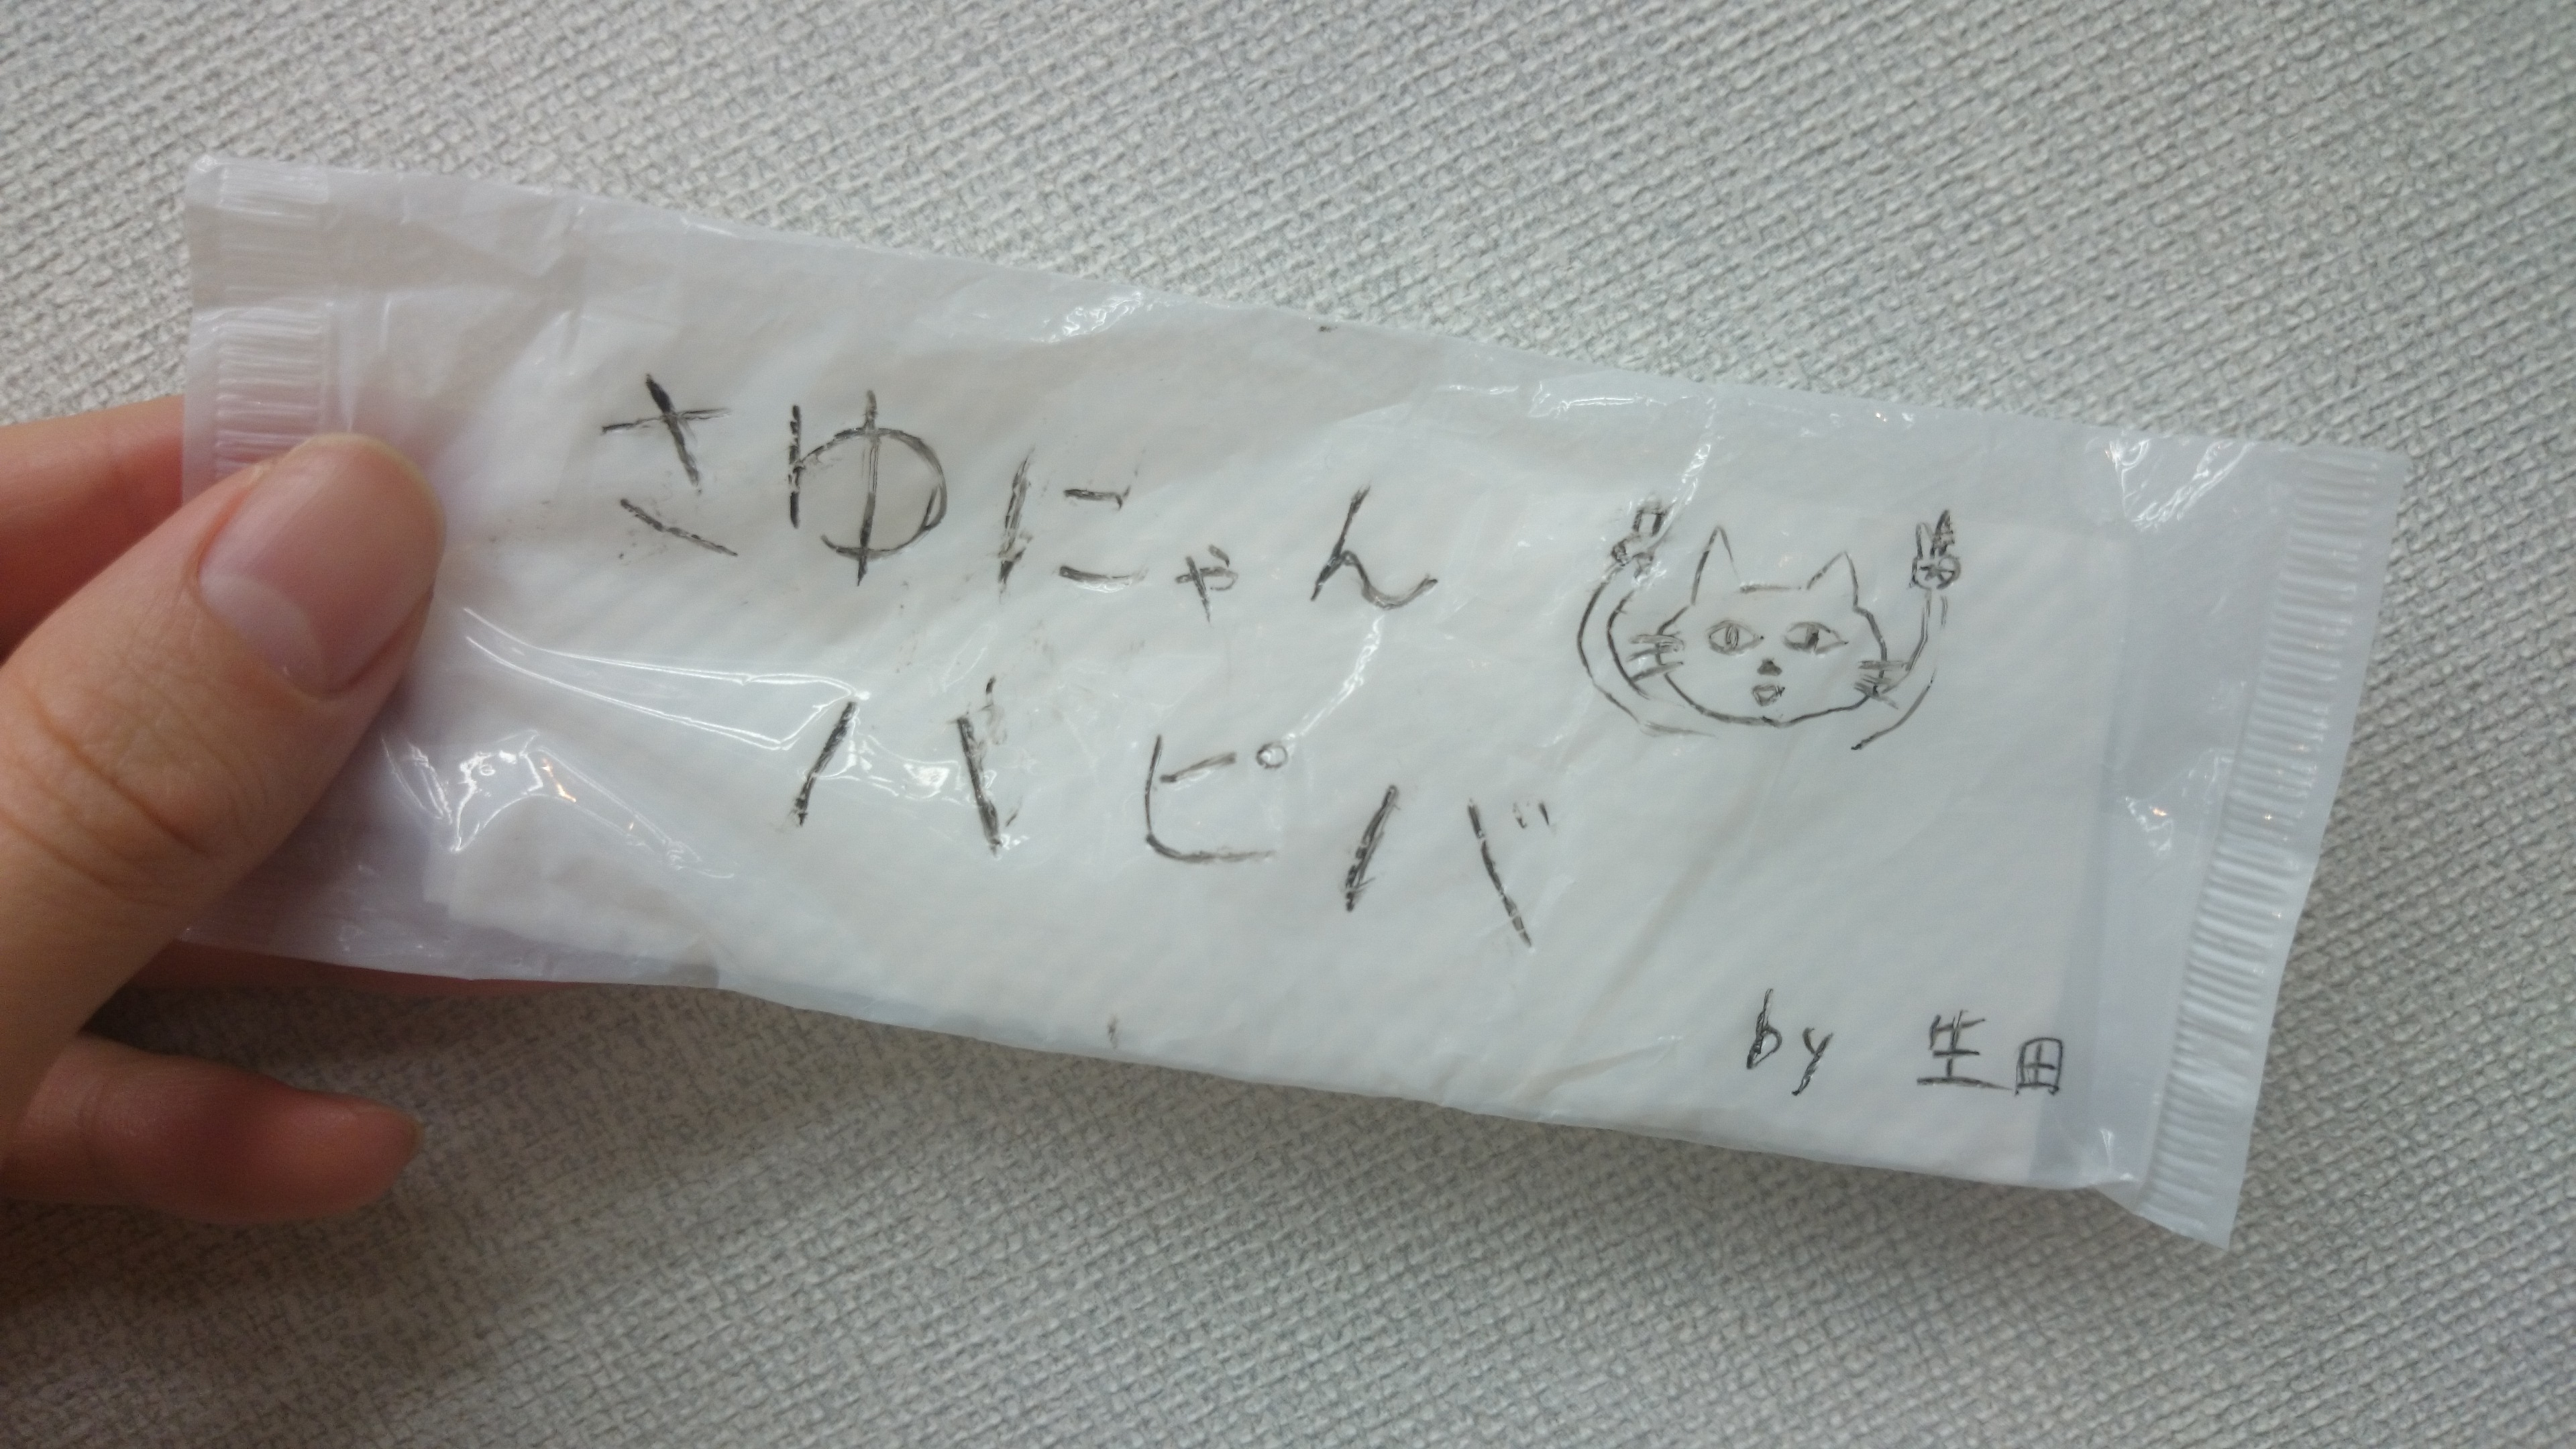 さゆにゃん
ハピバ
by 生田